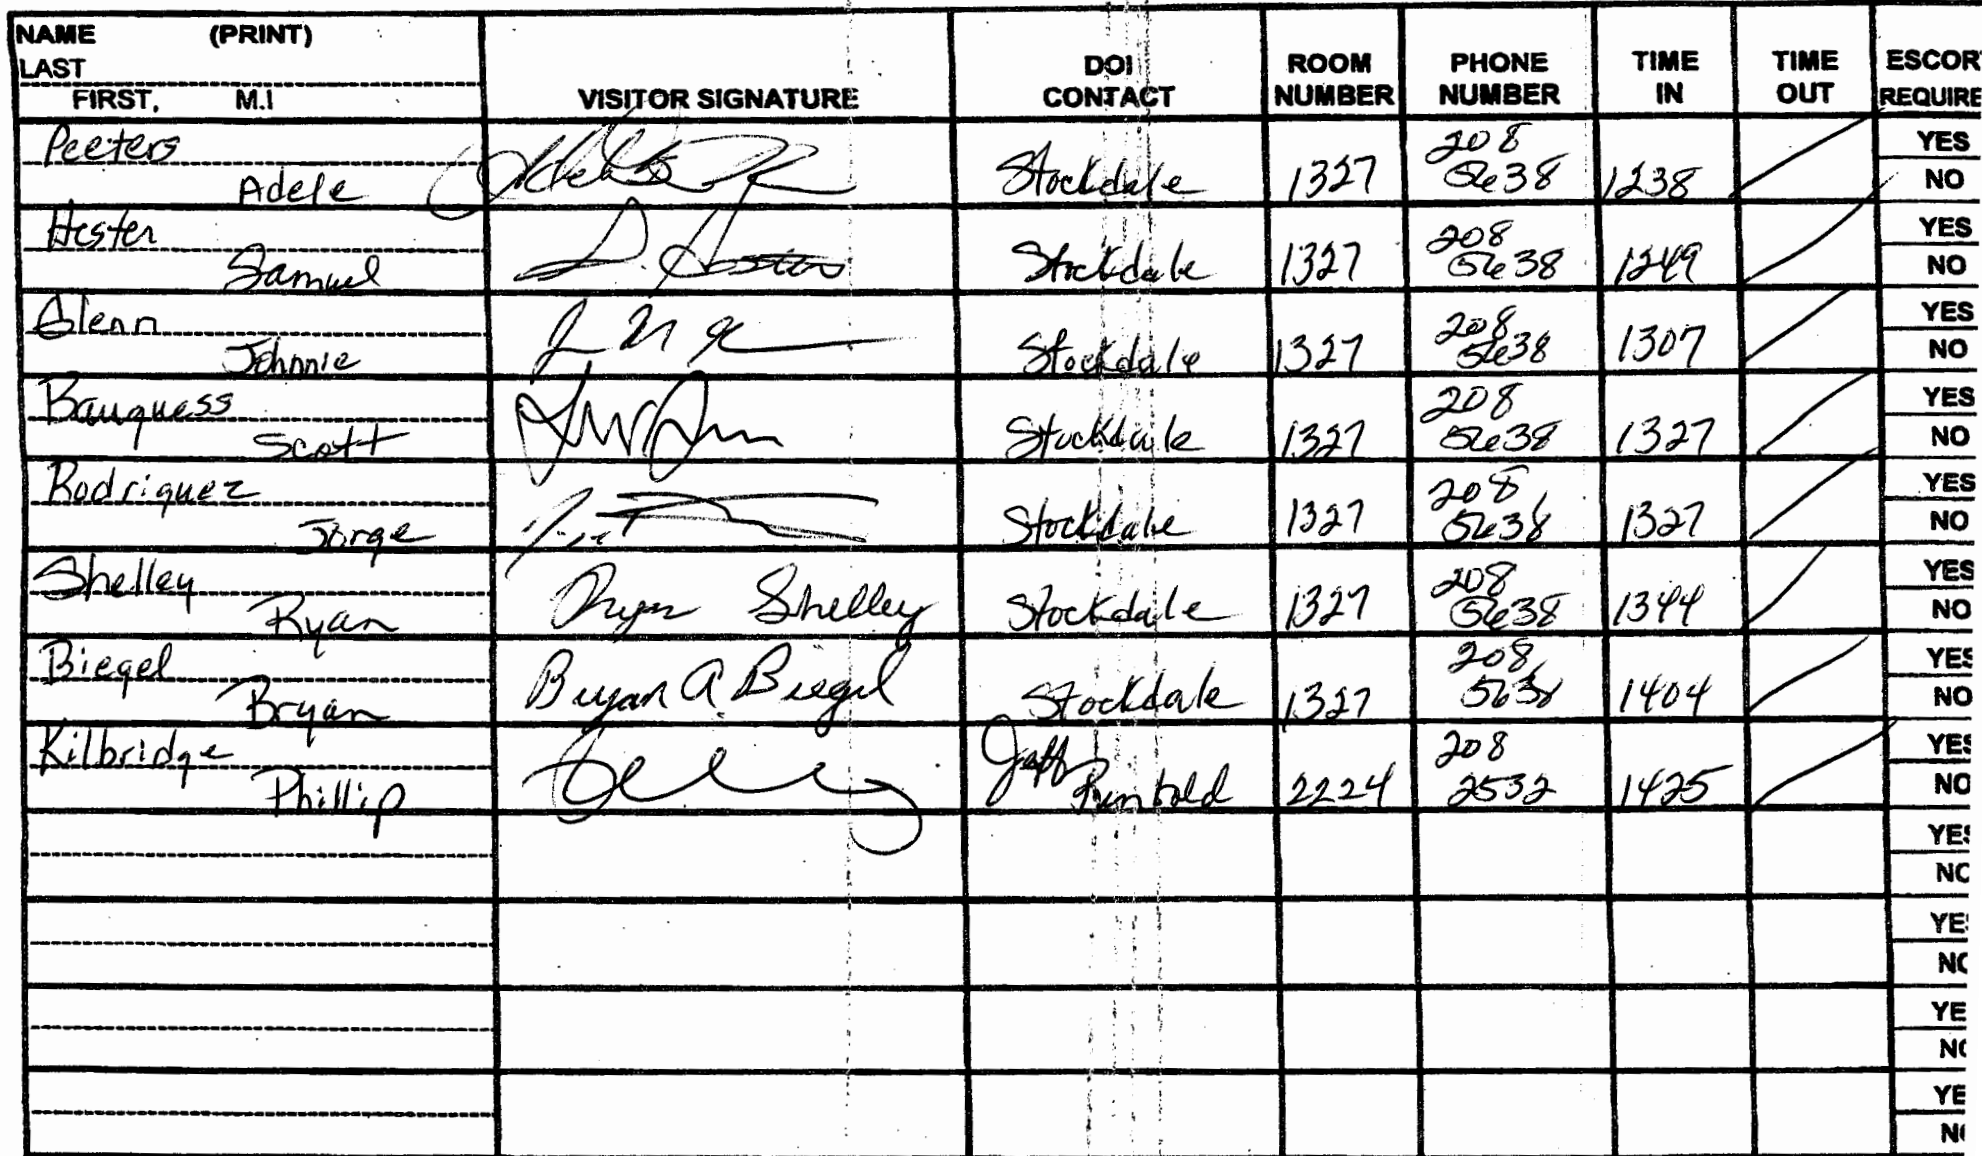 NAME (PRINT)
LAST
FIRST, M.I
VISITOR SIGNATURE
DOI
CONTACT
ROOM
NUMBER
PHONE
NUMBER
TIME
IN
TIME
OUT
ESCOR
REQUIRE
Peeters
Adele
Stockdale 1327 208 5638 1238 YES NO
Hester
Samuel
S. Hester
Stockdale 1327 208 5638 1249 YES NO
Glenn
Johnnie
Stockdale 1327 208 5638 1307 YES NO
Bauguess
Scott
Stockdale 1327 208 5638 1327 YES NO
Rodriguez
Jorge
Stockdale 1327 208 5638 1327 YES NO
Shelley
Ryan
Ryan Shelley
Stockdale 1327 208 5638 1344 YES NO
Biegel
Bryan
Bryan A. Biegel
Stockdale 1327 208 5638 1404 YES NO
Kilbridge
Phillip
Jeff
2224 208 2532 1425 YES NO
YES
NO
YE
NO
YE
NO
YE
NO